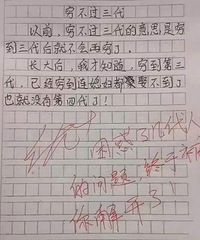 穷不过三代
以前，穷不过三代的意思是穷
到三代后就不会再穷了。
长大后，我才知道，穷到第三
代，已经穷到连媳妇都娶不到了
也就没有第四代了！
困惑了几代人
的问题，终于被
你解开了！